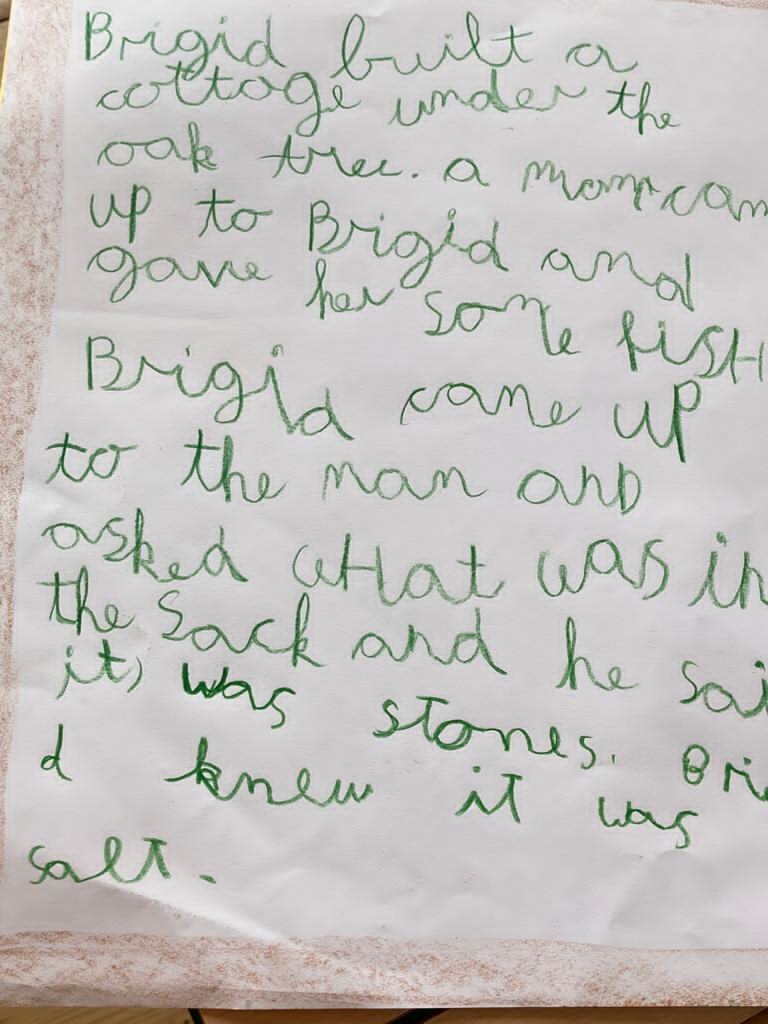 Brigid built a
cottage under the
oak tree. a man cam
up to Brigid and
gave her some fisH
Brigid came up
to the man anD
asked wHat was in
the Sack and he sai
it, was stones. Bri
d knew it was
salt.